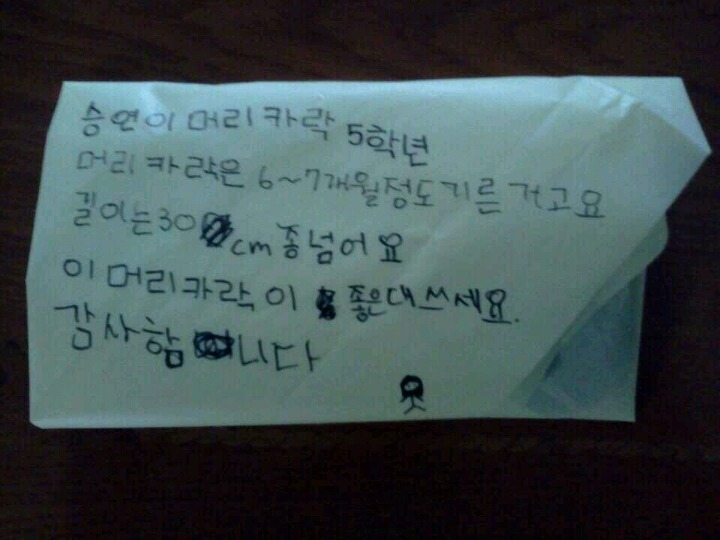 승연이 머리카락 5학년
머리카락은 6~7개월정도기른 거고요
길이는30cm 좀넘어요
이 머리카락이 좋은대쓰세요.
감사함니다